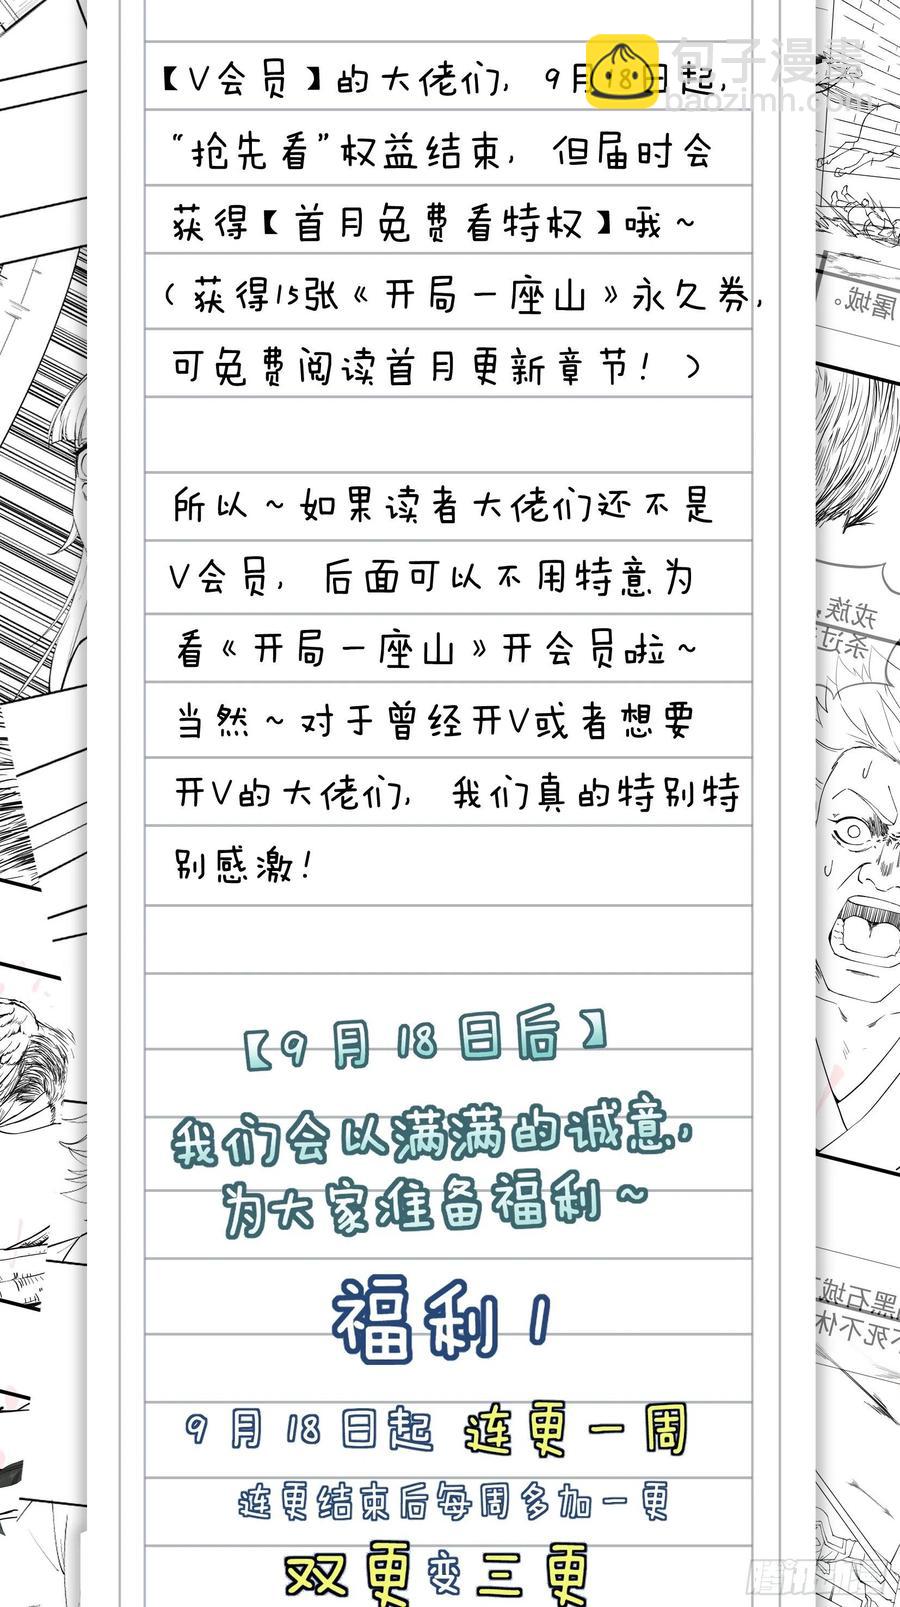 【V会员】的大佬们，9月18日起，
包子漫畫
baozimh.com
“抢先看”权益结束，但届时会
获得【首月免费看特权】哦～
（获得15张《开局一座山》永久券，
可免费阅读首月更新章节！）
所以～如果读者大佬们还不是
V会员，后面可以不用特意为
看《开局一座山》开会员啦～
当然～对于曾经开V或者想要
开V的大佬们，我们真的特别特
别感激！
【9月18日后】
我们会以满满的诚意，
为大家准备福利～
福利1
9月18日起 连更一周
连更结束后每周多加一更
双更变三更
屠城。
戎族
杀过
黑石城
不死不休
腾讯动漫